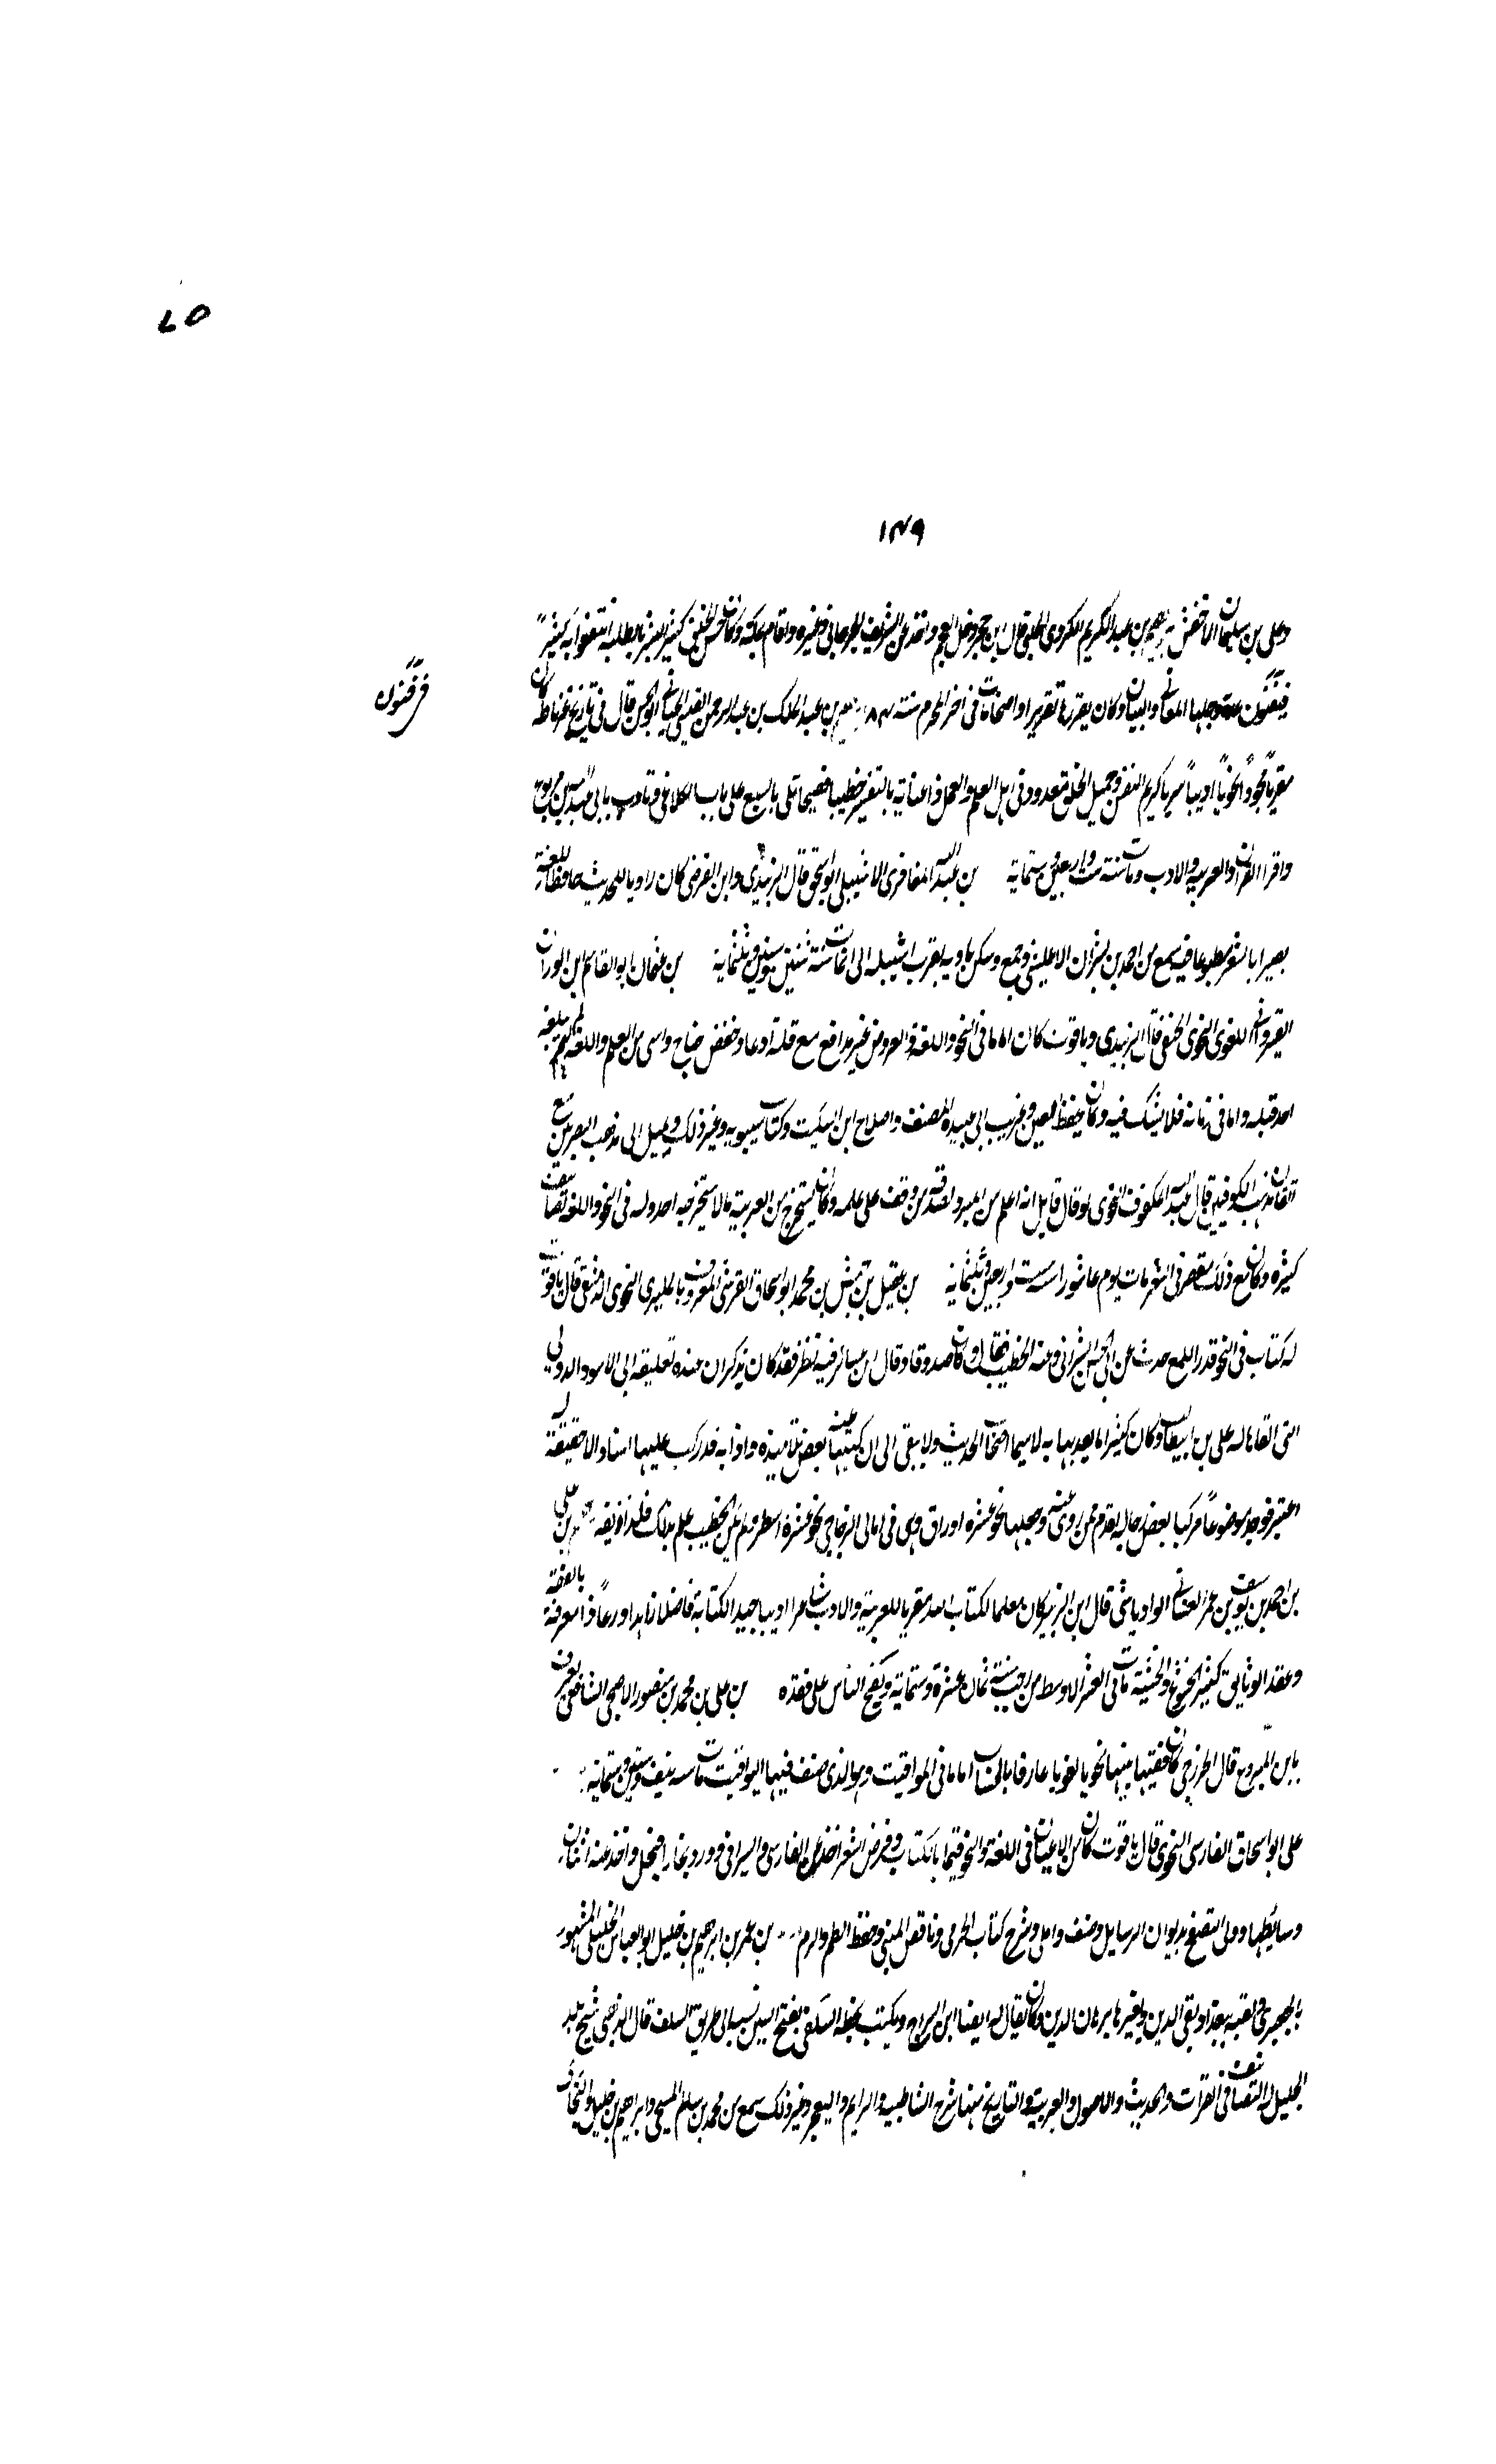 ٧٥
١٤٩
وعلى بن سليمان الاخفش ابرهيم بن عبد الكريم الكردى الحلبى قال ابن حجر دخل العجم واخذ عن الشريف الجرجانى وغيره واقام بمكة وكان حسن الخلق كثير البشر بالطلبة انتفعوا به كثيرا
فى فنون عدة وجلها المعانى والبيان وكان يقررها تقريرا واضحا مات فى اخر المحرم سنة ٨٤٠ ابرهيم بن عبد الملك بن عبد الرحمن القيسى ابو الحسن قال فى تاريخ غرناطة كان
فى فنون
مقريا مجودا نحويا اديبا سريا كريم النفس جميل الخلق معدود فى اهل العلم والعمل ذا عناية بالتفسير خطيبا فصيحا تلى بالسبع على
واقرا القران والعربية والادب ومات سنة ست واربعين وستماية بن عبد الله المغافرى الاشبيلى ابو اسحق قال الزبيدى وابن الفرضى كان راويا للحديث حافظا للغة
بصيرا بالشعر مطبوعا فيه سمع من احمد بن بشر ابن الاغلبس وجمع وسكن بادية بقرب اشبيلية الى ان مات سنة ثنتين وستين وثلثماية بن عثمان ابو القاسم ابن الوزان
القيروانى اللغوى النحوى الحنفى قال الزبيدى وياقوت كان اماما فى النحو واللغة والعروض غير مدافع مع قلة ادعا وخفض جناح وانتهى من العلم واللغة لم يبلغه
احد قبله واما فى زمانه فلا يشك فيه وكان يحفظ العين وغريب ابى عبيد المصنف واصلاح ابن السكيت وكتاب سيبويه وغير ذلك ويميل الى مذهب البصريين مع
اتقان مذهب الكوفيين قال عبد الله المكفوف النحوى لو قال قايل انه اعلم من المبرد لصدقه من وقف على علمه وكان يستخرج من العربية مالا يستخرجه احد وله فى النحو واللغة تصانيف
كثيره وكان مع ذلك مقصر فى الشعر مات يوم عاشورا سنة ست واربعين وثلثماية بن عقيل بن حبيش بن محمد ابو اسحاق القرشى المعروف بالمكبرى النحوى الدمشقى قال ياقوت
له كتاب فى النحو قدر اللمع حدث عن ابى الحسن الشرابى وعنه الخطيب فقال وكان صدوقا وقال ابن عساكر فيه نظر فقد كان يذكر ان عنده تعليقه ابى الاسود الدولى
التى القاها له على بن ابيطالب وكان كثيرا ما يعد بها به لا سيما اصحاب الحديث ولا يفى الى ان كتبها عنه بعض تلاميذه واذا به قد ركب عليها اسنادا لا حقيقة له
اعتبر فوجد موضوعا مركبا بعض رجاله اقدم ممن روى عنه وجعلها نحو عشره اوراق وهى فى امالى الزجاجى نحو عشرة اسطر ولم يكن الخطيب علم بذلك فلذا وثقه ابرهيم بن على
بن احمد بن يوسف بن عمر الغسانى الوادياشى قال ابن الزبير كان معلما لكتاب الله مقريا للعربية والادب شاعرا اديبا جيد الكتابة فاضلا زاهدا ورعا ذا معرفة بالفقه
وعقد الوثايق كثير الخشوع والخشية مات فى العشر الاوسط من رجب سنة ثمان عشرة وستماية وتفجع الناس على فقده بن على بن محمد بن منصور الاصبحى الشافعى يعرف
بابن المبردع قال الخزرجى كان فقيها نبيها نحويا لغويا عارفا بالحساب اماما فى المواقيت وهو الذى صنف فيها اليواقيت مات سنه نيف وستين وستمايه
على ابو اسحاق الفارسى النحوى قال ياقوت كان من الاعيان فى اللغة والنحو قيما بالكتاب وقرض الشعر اخذ عن الفارسى والسيرافى وورد بخارا فبجل واخذ عنه ابناء
وسايكطها وولى التصفح بديوان الرسايل وصنف واملى وشرح كتاب الجرمى وناقض المتنبى وحفظ الطم والرم بن عمر بن ابرهيم بن خليل ابو العباس الخليلى المشهور
بالجعبرى ولقبه ببغداد تقى الدين وبغيرها برهان الدين وكان يقال له ايضا ابن السراج ويكتب بخطه السلفى بفتح السين نسبة الى طريق السلف قال الذهبى شيخ بلد
الخليل له التصانيف فى القرآت والحديث والاصول والعربية والتاريخ منها شرح الشاطبيه والرايه والتعجيز وغير ذلك سمع من محمد بن سالم المنبجى وابراهيم بن خليل